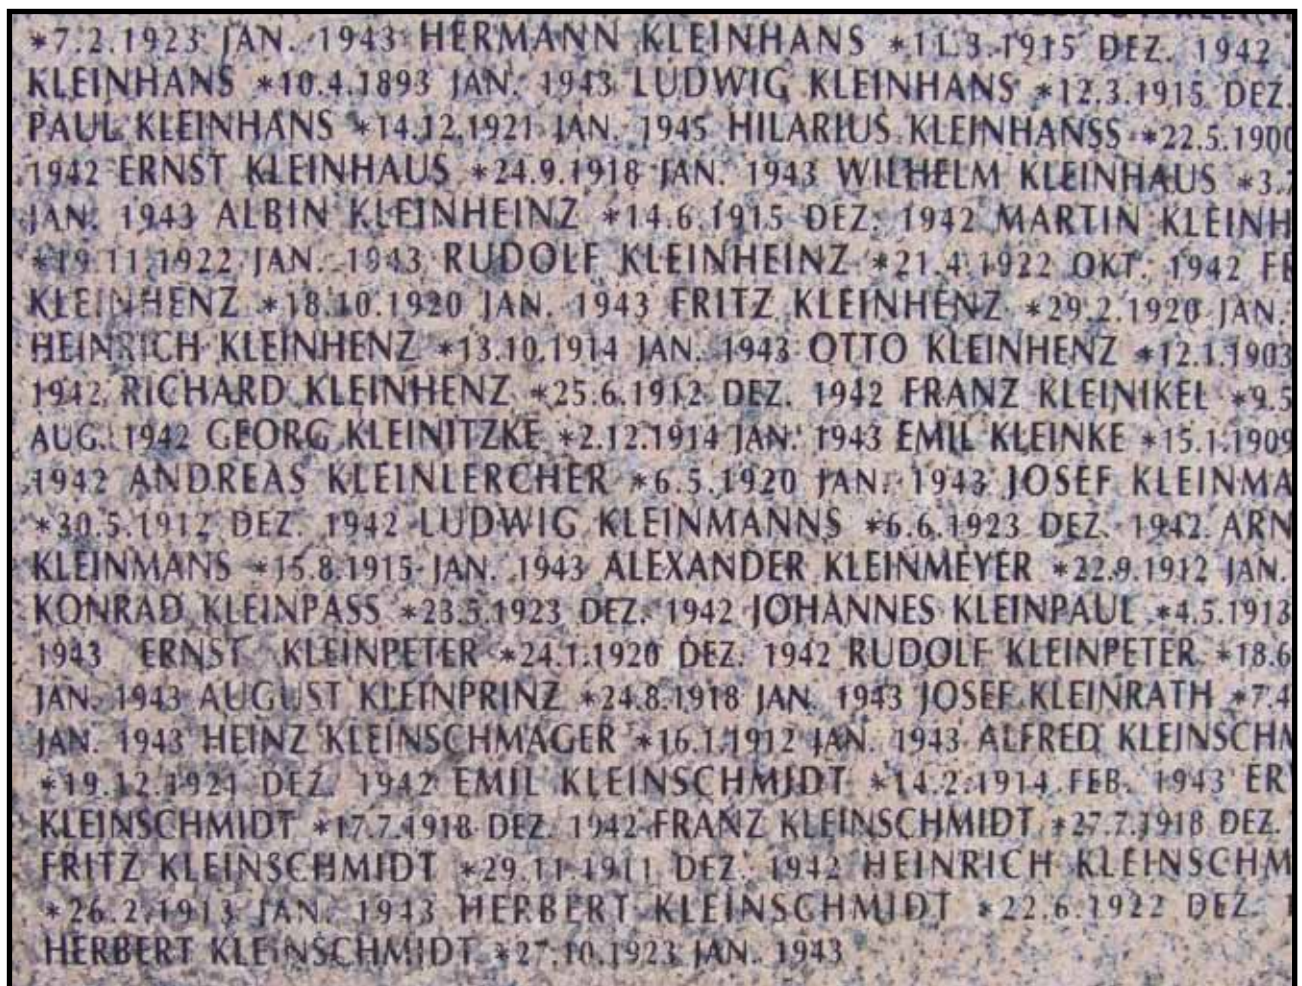 *7.2.1923 JAN. 1943 HERMANN KLEINHANS *11.3.1915 DEZ. 1942
KLEINHANS *10.4.1893 JAN. 1943 LUDWIG KLEINHANS *12.3.1915 DEZ.
PAUL KLEINHANS *14.12.1921 JAN. 1945 HILARIUS KLEINHANSS *22.5.1900
1942 ERNST KLEINHAUS *24.9.1918 JAN. 1943 WILHELM KLEINHAUS *3.
JAN. 1943 ALBIN KLEINHEINZ *14.6.1915 DEZ. 1942 MARTIN KLEINH
*19.11.1922 JAN. 1943 RUDOLF KLEINHEINZ *21.4.1922 OKT. 1942 FE
KLEINHENZ *18.10.1920 JAN. 1943 FRITZ KLEINHENZ *29.2.1920 JAN.
HEINRICH KLEINHENZ *13.10.1914 JAN. 1943 OTTO KLEINHENZ *12.1.1903
1942 RICHARD KLEINHENZ *25.6.1912 DEZ. 1942 FRANZ KLEINIKEL *9.5
AUG. 1942 GEORG KLEINITZKE *2.12.1914 JAN. 1943 EMIL KLEINKE *15.1.1909
1942 ANDREAS KLEINLERCHER *6.5.1920 JAN. 1943 JOSEF KLEINMA
*30.5.1912 DEZ. 1942 LUDWIG KLEINMANNS *6.6.1923 DEZ. 1942 ARN
KLEINMANS *15.8.1915 JAN. 1943 ALEXANDER KLEINMEYER *22.9.1912 JAN.
KONRAD KLEINPASS *23.5.1923 DEZ. 1942 JOHANNES KLEINPAUL *4.5.1913
1943 ERNST KLEINPETER *24.1.1920 DEZ. 1942 RUDOLF KLEINPETER *18.6
JAN. 1943 AUGUST KLEINPRINZ *24.8.1918 JAN. 1943 JOSEF KLEINRATH *7.4
JAN. 1943 HEINZ KLEINSCHMAGER *16.1.1912 JAN. 1943 ALFRED KLEINSCHM
*19.12.1921 DEZ. 1942 EMIL KLEINSCHMIDT *14.2.1914 FEB. 1943 ER
KLEINSCHMIDT *17.7.1918 DEZ. 1942 FRANZ KLEINSCHMIDT *27.7.1918 DEZ.
FRITZ KLEINSCHMIDT *29.11.1911 DEZ. 1942 HEINRICH KLEINSCHM
*26.2.1913 JAN. 1943 HERBERT KLEINSCHMIDT *22.6.1922 DEZ. 1
HERBERT KLEINSCHMIDT *27.10.1923 JAN. 1943